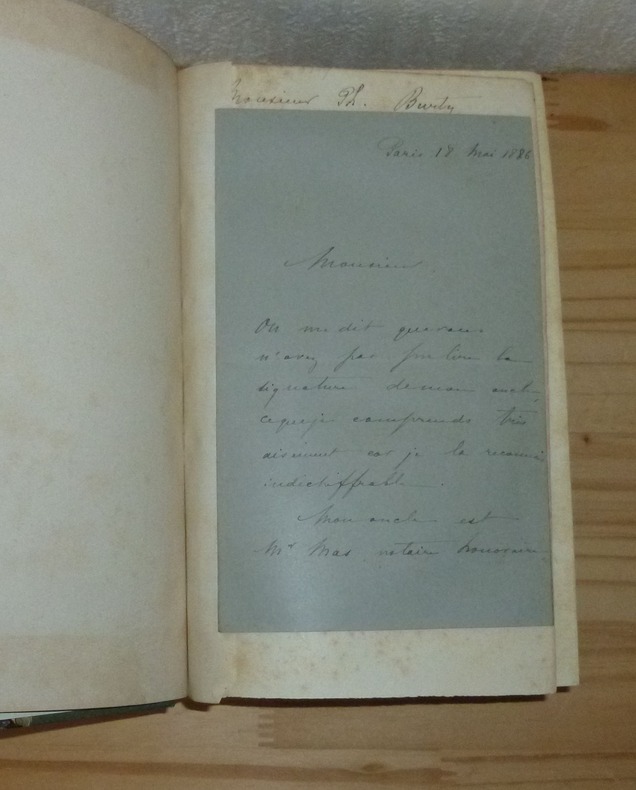 Monsieur Ph. Burty
Paris 18 Mai 1886
Monsieur,
On me dit que vous
n'avez pas pu lire la
signature de mon oncle,
ce que je comprends très
aisément car je la reconnais
indéchiffrable.
Mon oncle est
Mr Mas notaire honoraire